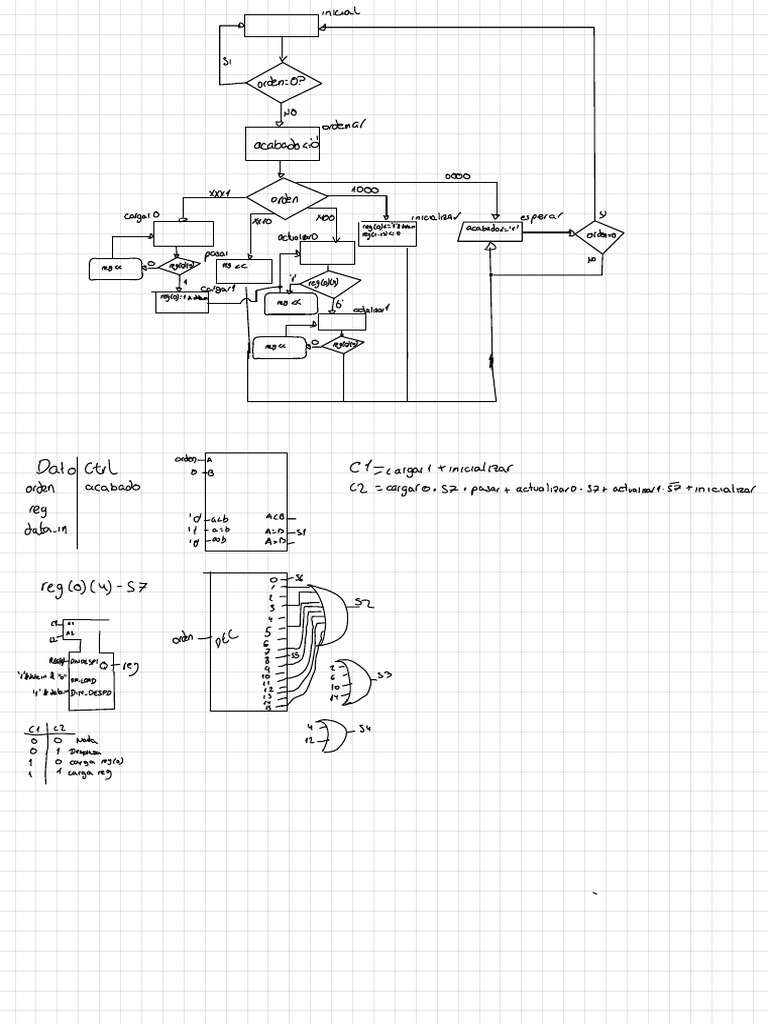 inicial
SI
orden=0?
NO
ordenar
acabado<='0'
0000
xxx1
orden
1000
xx10
x100
cargar0
inicializar
esperar
SI
actualizar0
acabado<='1'
orden=0
pasar
NO
reg <<
0
reg(0)(4)
reg <<
1
cargar1
'1'
reg(0)(4)
reg <<
'0'
actualizar1
reg <<
0
reg(0)(4)
Dato Ctrl
orden acabado
reg
data_in
orden A
0 B
'0' a<b A<B
'1' a=b A=B S1
'0' a>b A>B
C1 = cargar1 + inicializar
C2 = cargar0 · S7 + pasar + actualizar0 · S7 + actualizar1 · S7 + inicializar
reg(0)(4) - S7
C1
C2
Q reg
DIN_DESPD
C1 C2
0 0 Nada
0 1 Desplaza
1 0 carga reg(0)
1 1 carga reg
orden DEC
0 S6
1
2
3
4
5
6
7
8 S5
9
10
11
12
13
14
15
S2
2
6
10
14
S3
4
12
S4